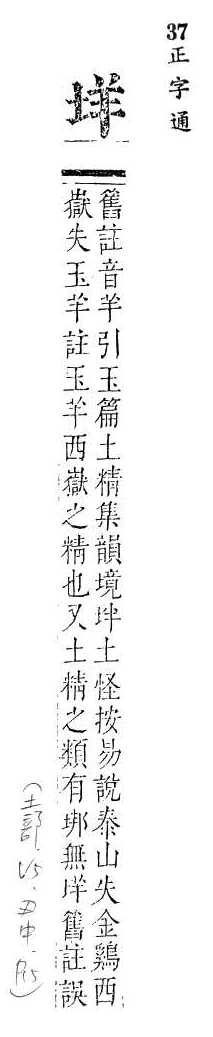 37正字通
垟
舊註音羊引玉篇土精集韻境垟土怪按易說泰山失金鷄西
嶽失玉羊註玉羊西嶽之精也又土精之類有㘯無垟舊註誤